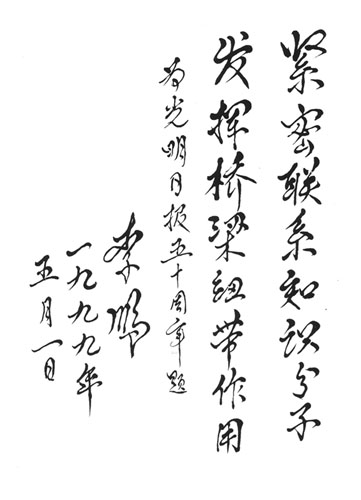 紧密联系知识分子
发挥桥梁纽带作用
为光明日报五十周年题
李鹏
一九九九年
五月一日